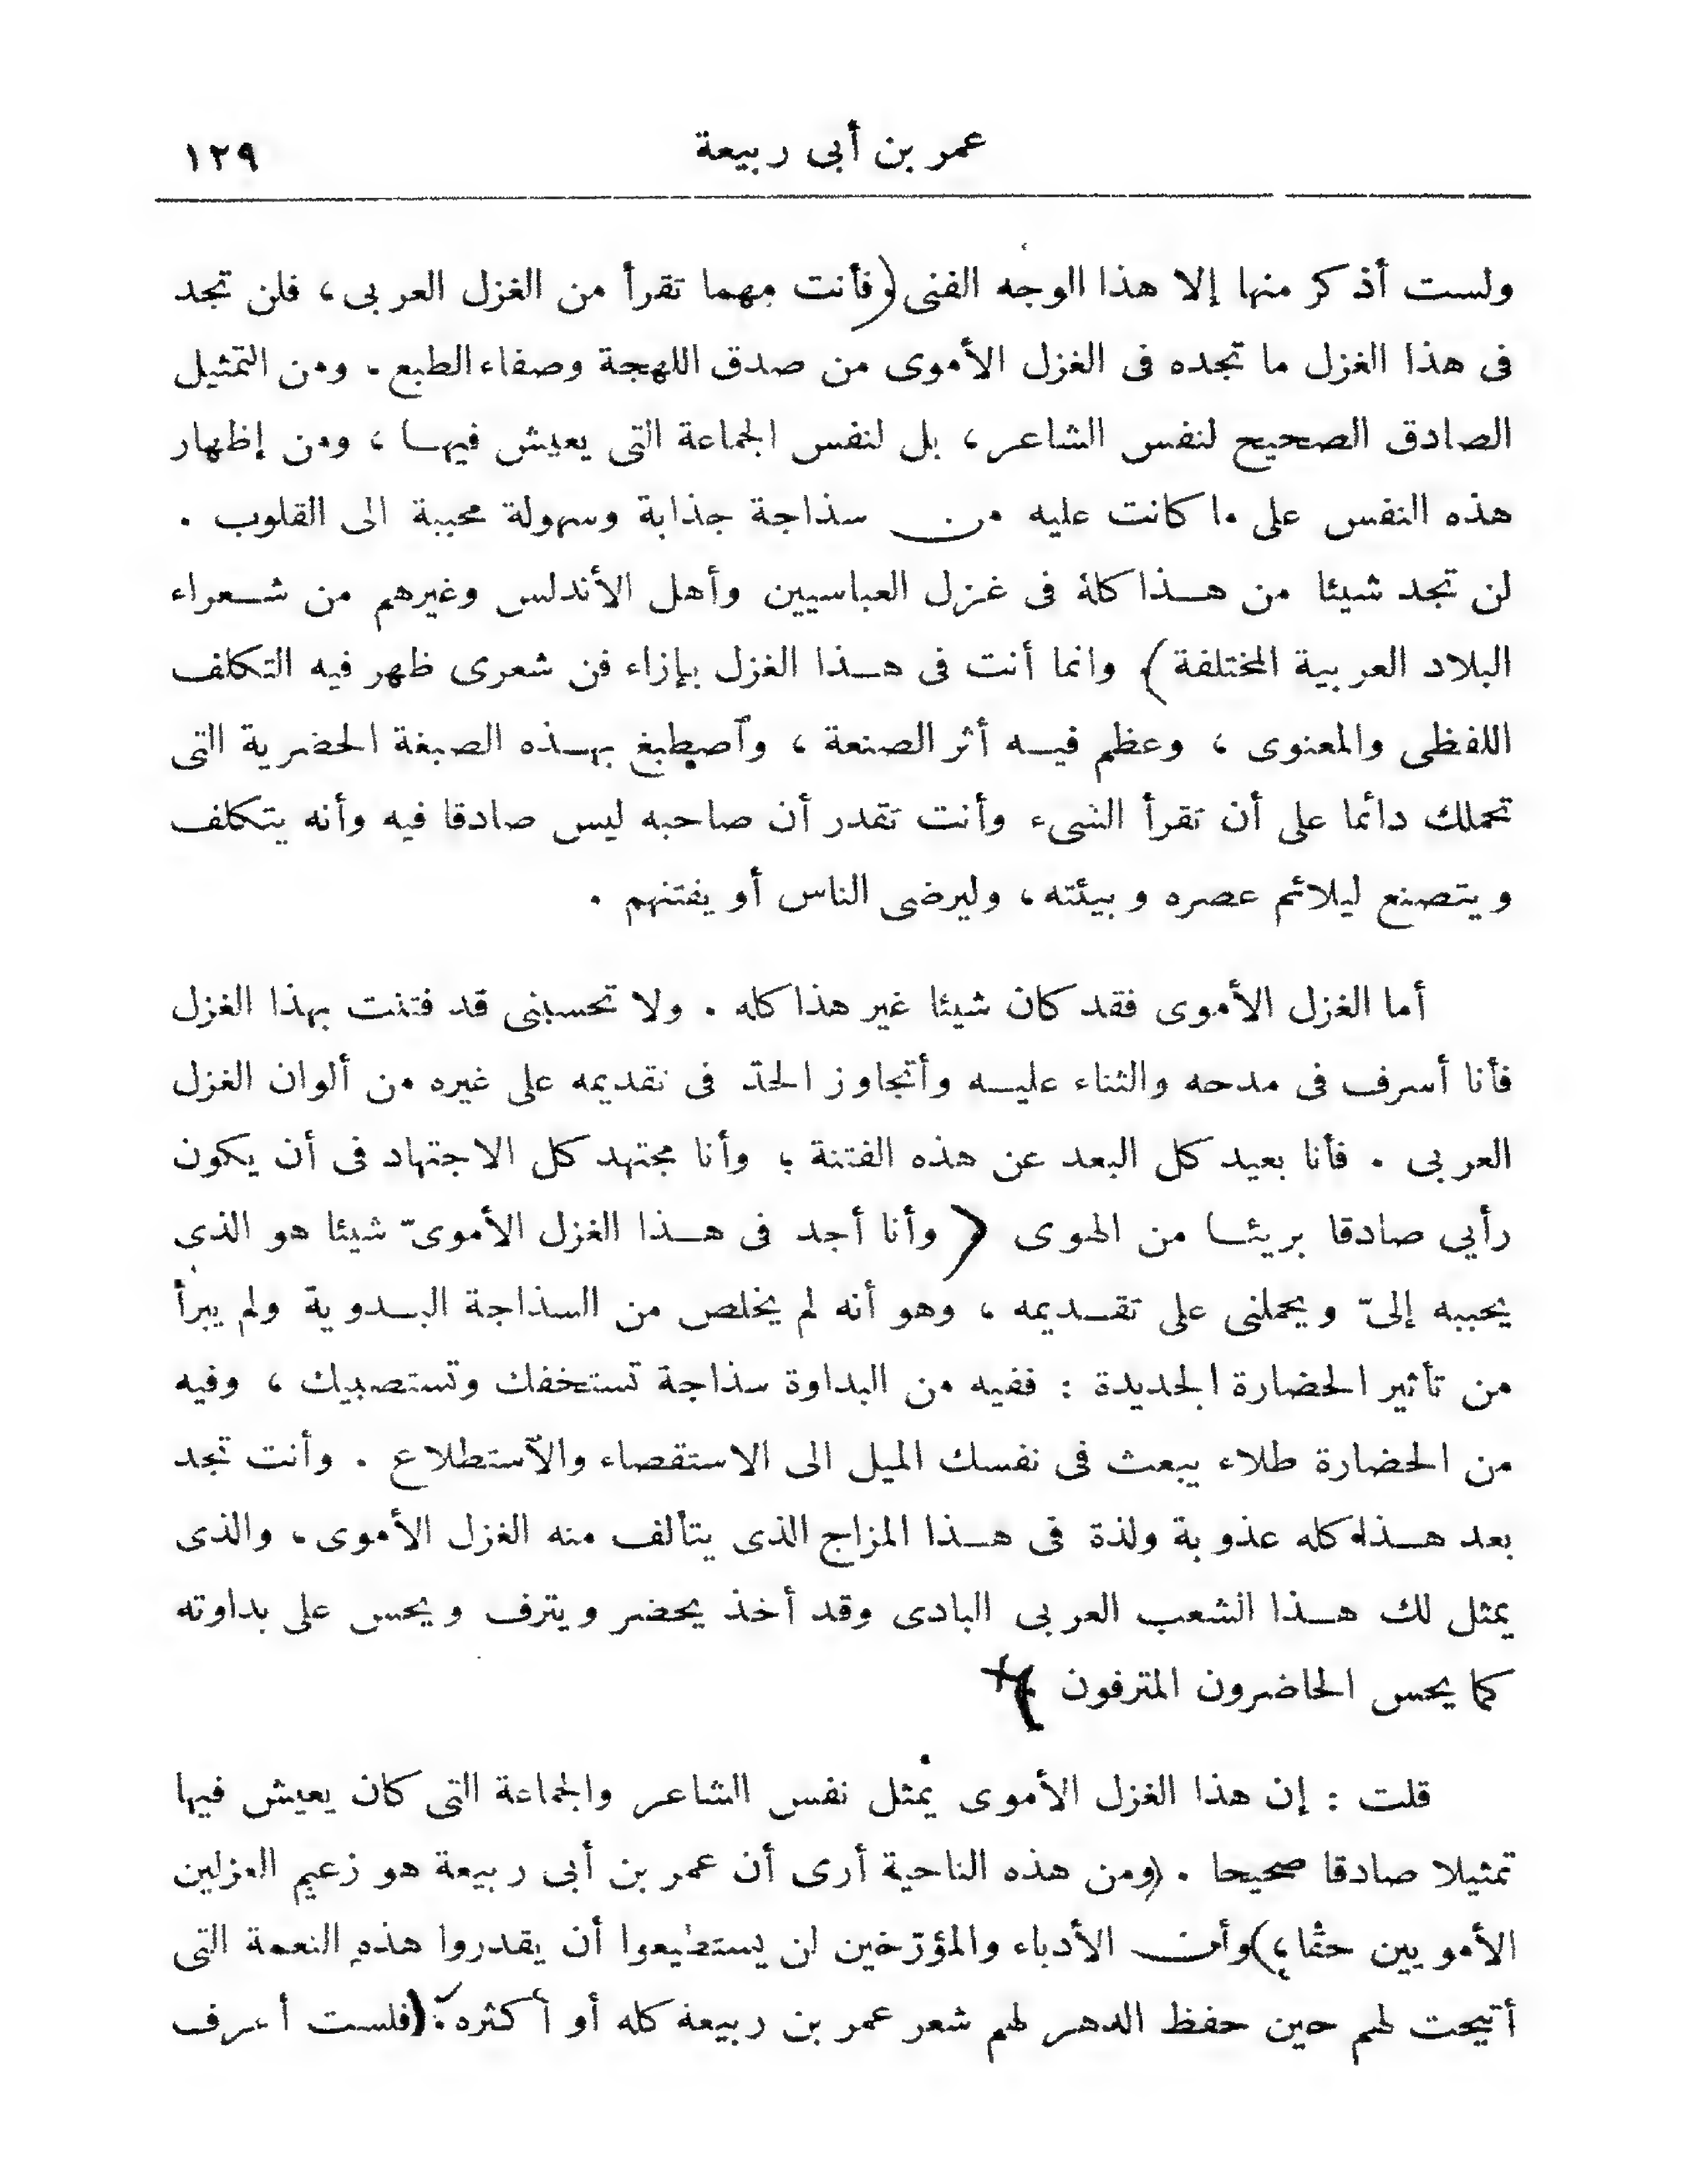 عمر بن أبى ربيعة ١٢٩
ولست أذكر منها إلا هذا الوجه الفنى (فأنت مهما تقرأ من الغزل العربى، فلن تجد
فى هذا الغزل ما تجده فى الغزل الأموى من صدق اللهجة وصفاء الطبع. ومن التمثيل
الصادق الصحيح لنفس الشاعر، بل لنفس الجماعة التى يعيش فيها، ومن إظهار
هذه النفس على ما كانت عليه من سذاجة جذابة وسهولة محببة الى القلوب.
لن تجد شيئا من هذا كله فى غزل العباسيين وأهل الأندلس وغيرهم من شعراء
البلاد العربية المختلفة). وانما أنت فى هذا الغزل بإزاء فن شعرى ظهر فيه التكلف
اللفظى والمعنوى، وعظم فيه أثر الصنعة، وآصطبغ بهذه الصبغة الحضرية التى
تحملك دائما على أن تقرأ الشىء وأنت تقدر أن صاحبه ليس صادقا فيه وأنه يتكلف
ويتصنع ليلائم عصره وبيئته، وليرضى الناس أو يفتنهم.
أما الغزل الأموى فقد كان شيئا غير هذا كله. ولا تحسبنى قد فتنت بهذا الغزل
فأنا أسرف فى مدحه والثناء عليه وأتجاوز الحدّ فى تقديمه على غيره من ألوان الغزل
العربى. فأنا بعيد كل البعد عن هذه الفتنة؛ وأنا مجتهد كل الاجتهاد فى أن يكون
رأيى صادقا بريئا من الهوى (وأنا أجد فى هذا الغزل الأموىّ شيئا هو الذى
يحببه إلىّ ويحملنى على تقديمه، وهو أنه لم يخلص من السذاجة البدوية ولم يبرأ
من تأثير الحضارة الجديدة: ففيه من البداوة سذاجة تستخفك وتستصبيك، وفيه
من الحضارة طلاء يبعث فى نفسك الميل الى الاستقصاء والآستطلاع. وأنت تجد
بعد هذا كله عذوبة ولذة فى هذا المزاج الذى يتألف منه الغزل الأموى، والذى
يمثل لك هذا الشعب العربى البادى وقد أخذ يحضر ويترف ويحس على بداوته
كما يحس الحاضرون المترفون)
قلت: إن هذا الغزل الأموى يمثل نفس الشاعر والجماعة التى كان يعيش فيها
تمثيلا صادقا صحيحا. (ومن هذه الناحية أرى أن عمر بن أبى ربيعة هو زعيم الغزلين
الأمويين حقّا،) وأن الأدباء والمؤرّخين لن يستطيعوا أن يقدروا هذه النعمة التى
أتيحت لهم حين حفظ الدهر لهم شعر عمر بن ربيعة كله أو أكثره: (فلست أعرف